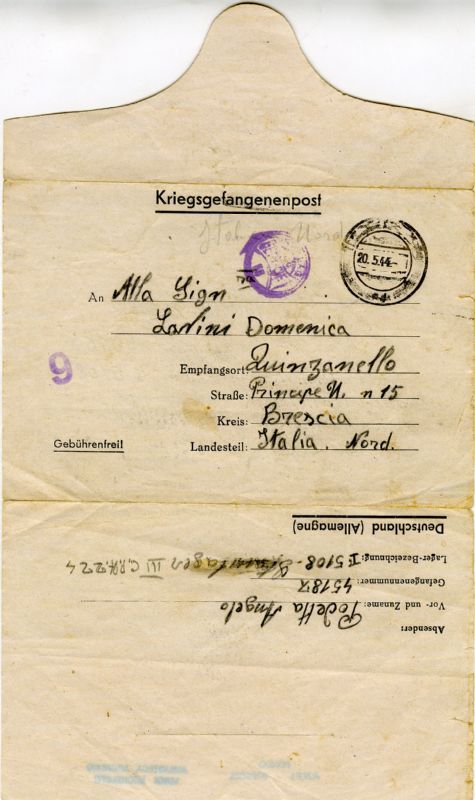 Kriegsgefangenenpost
Nord
20.5.44
An Alla Sign
Lavini Domenica
9
Empfangsort: Quinzanello
Straße: Principe U. n 15
Kreis: Brescia
Gebührenfrei! Landesteil: Italia. Nord.
Absender:
Vor- und Zuname: Podetta Angelo
Gefangenennummer: 45187
Lager-Bezeichnung: I 5108 - III
Deutschland (Allemagne)